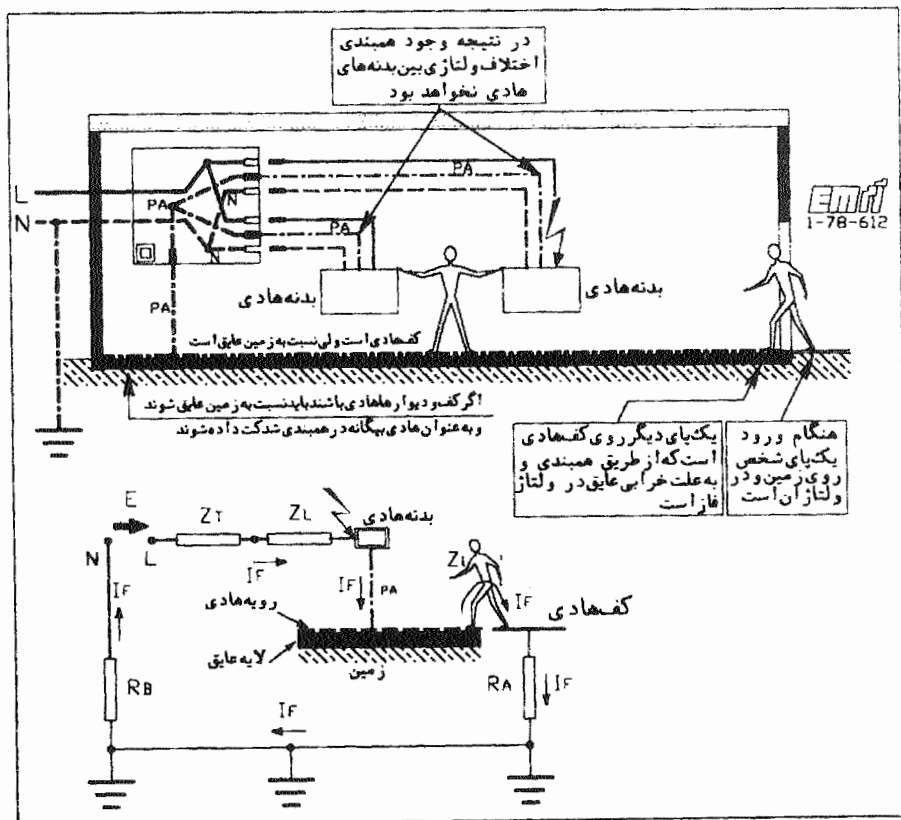 در نتیجه وجود همبندی
اختلاف ولتاژی بین بدنه های
هادی نخواهد بود
L
N
PA
PA
N
N
PA
PA
PA
EMRI
1-78-612
بدنه هادی
بدنه هادی
کف هادی است ولی نسبت به زمین عایق است
اگر کف و دیوارها هادی باشند باید نسبت به زمین عایق شوند
و به عنوان هادی بیگانه در همبندی شدکت داده شوند
یک پای دیگر روی کف هادی
است که از طریق همبندی و
به علت خرابی عایق در ولتاژ
فاز است
هنگام ورود
یک پای شخص
روی زمین و در
ولتاژ آن است
E
ZT
ZL
بدنه هادی
N
L
IF
IF
IF
PA
ZL
IF
کف هادی
رویه هادی
لایه عایق
زمین
RB
RA
IF
IF